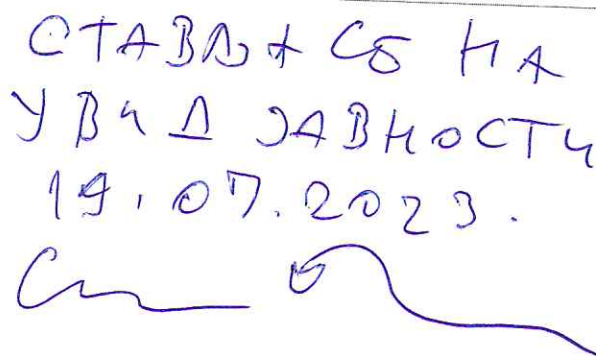 СТАВЉА СЕ НА
УВИД ЈАВНОСТИ
19.07.2023.